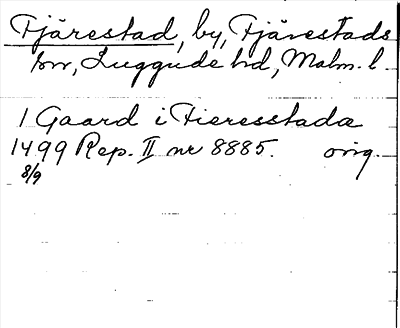 Fjärestad, by, Fjärestads
sn, Luggude hd, Malm. l.
1 Gaard i Fieresstada
1499 Rep. II nr 8885. orig.
8/9